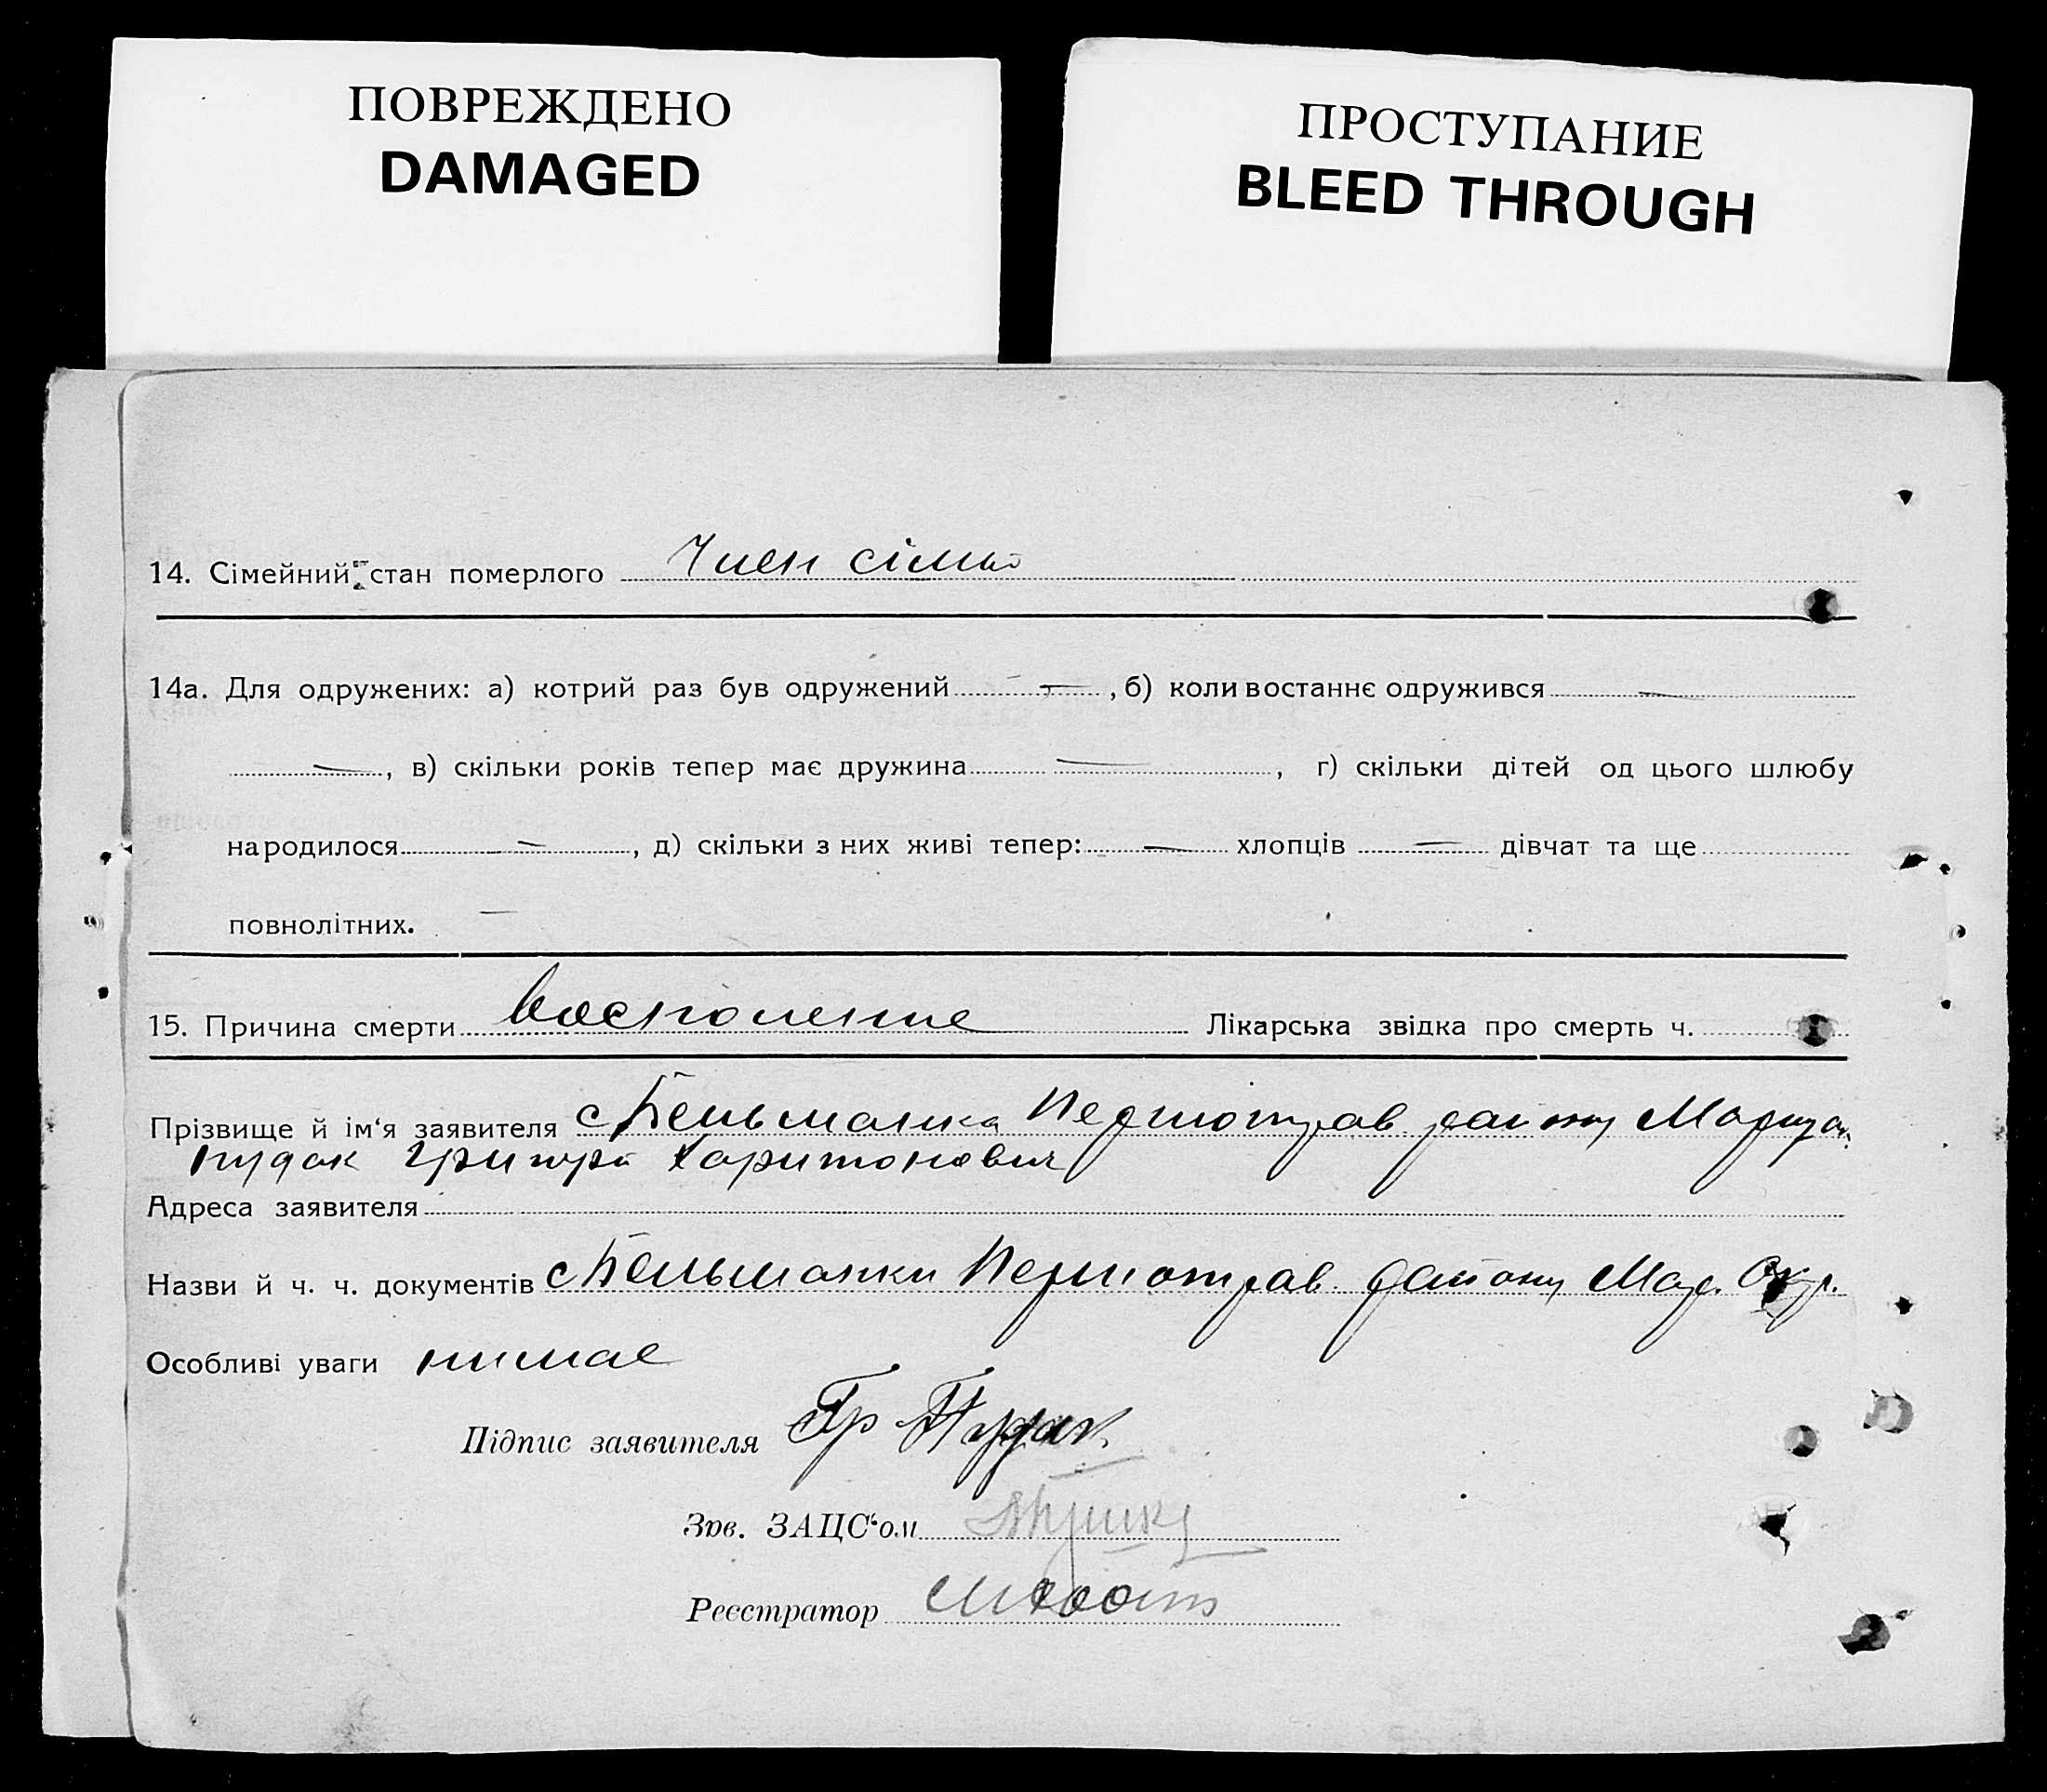 ПОВРЕЖДЕНО
DAMAGED
ПРОСТУПАНИЕ
BLEED THROUGH
14. Сімейний стан померлого Член сімьі
14а. Для одружених: а) котрий раз був одружений — , б) коли востаннє одружився —
— , в) скільки років тепер має дружина — , г) скільки дітей од цього шлюбу
народилося — , д) скільки з них живі тепер: — хлопців — дівчат та ще
повнолітних. —
15. Причина смерти Восполение Лікарська звідка про смерть ч.
Прізвище й ім'я заявителя с Бельманка Першотрав району Маріуп.
Пудак Григорі Харитонович
Адреса заявителя
Назви й ч. ч. документів с Бельманки Першотрав. району Мар. Окр.
Особливі уваги нимае
Підпис заявителя Гр Пудак
Зав. ЗАЦС'ом
Реєстратор